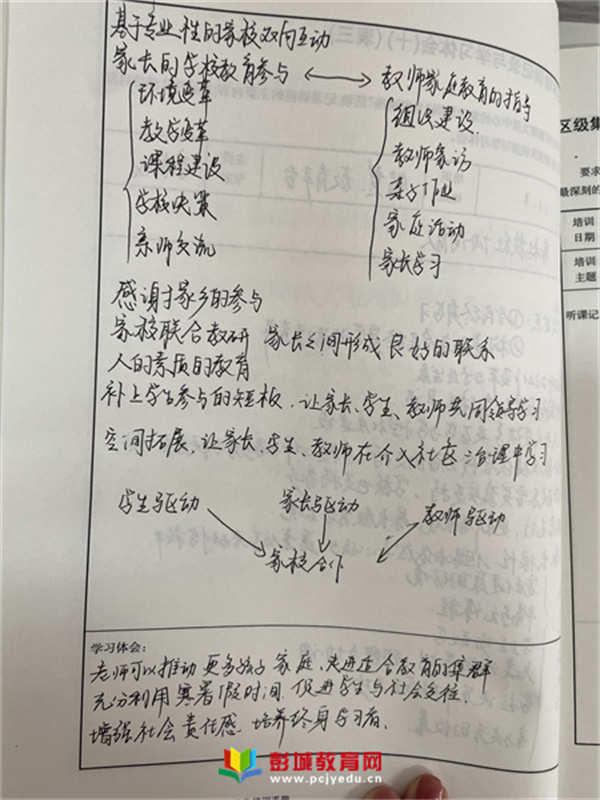 基于专业性的家校双向互动
家长的学校教育参与 ←→ 教师家庭教育的指导
环境变革
教学变革
课程建设
学校决策
亲师交流
组织建设
教师家访
亲子作业
家庭活动
家长学习
感谢对家乡的参与
家校联合教研 家长之间形成良好的联系
人的素质的教育
补上学生参与的短板，让家长、学生、教师共同领导学习
空间拓展，让家长、学生、教师在介入社区治理中学习
学生驱动 家长驱动 教师驱动
家校合作
学习体会：
老师可以推动更多孩子家庭，走进适合教育的集群
充分利用寒暑假时间，促进学生与社会交往
增强社会责任感，培养终身学习者。
区级集
要求
最深刻的
培训
日期
培训
主题
听课记
彭城教育网
www.pcjyedu.cn